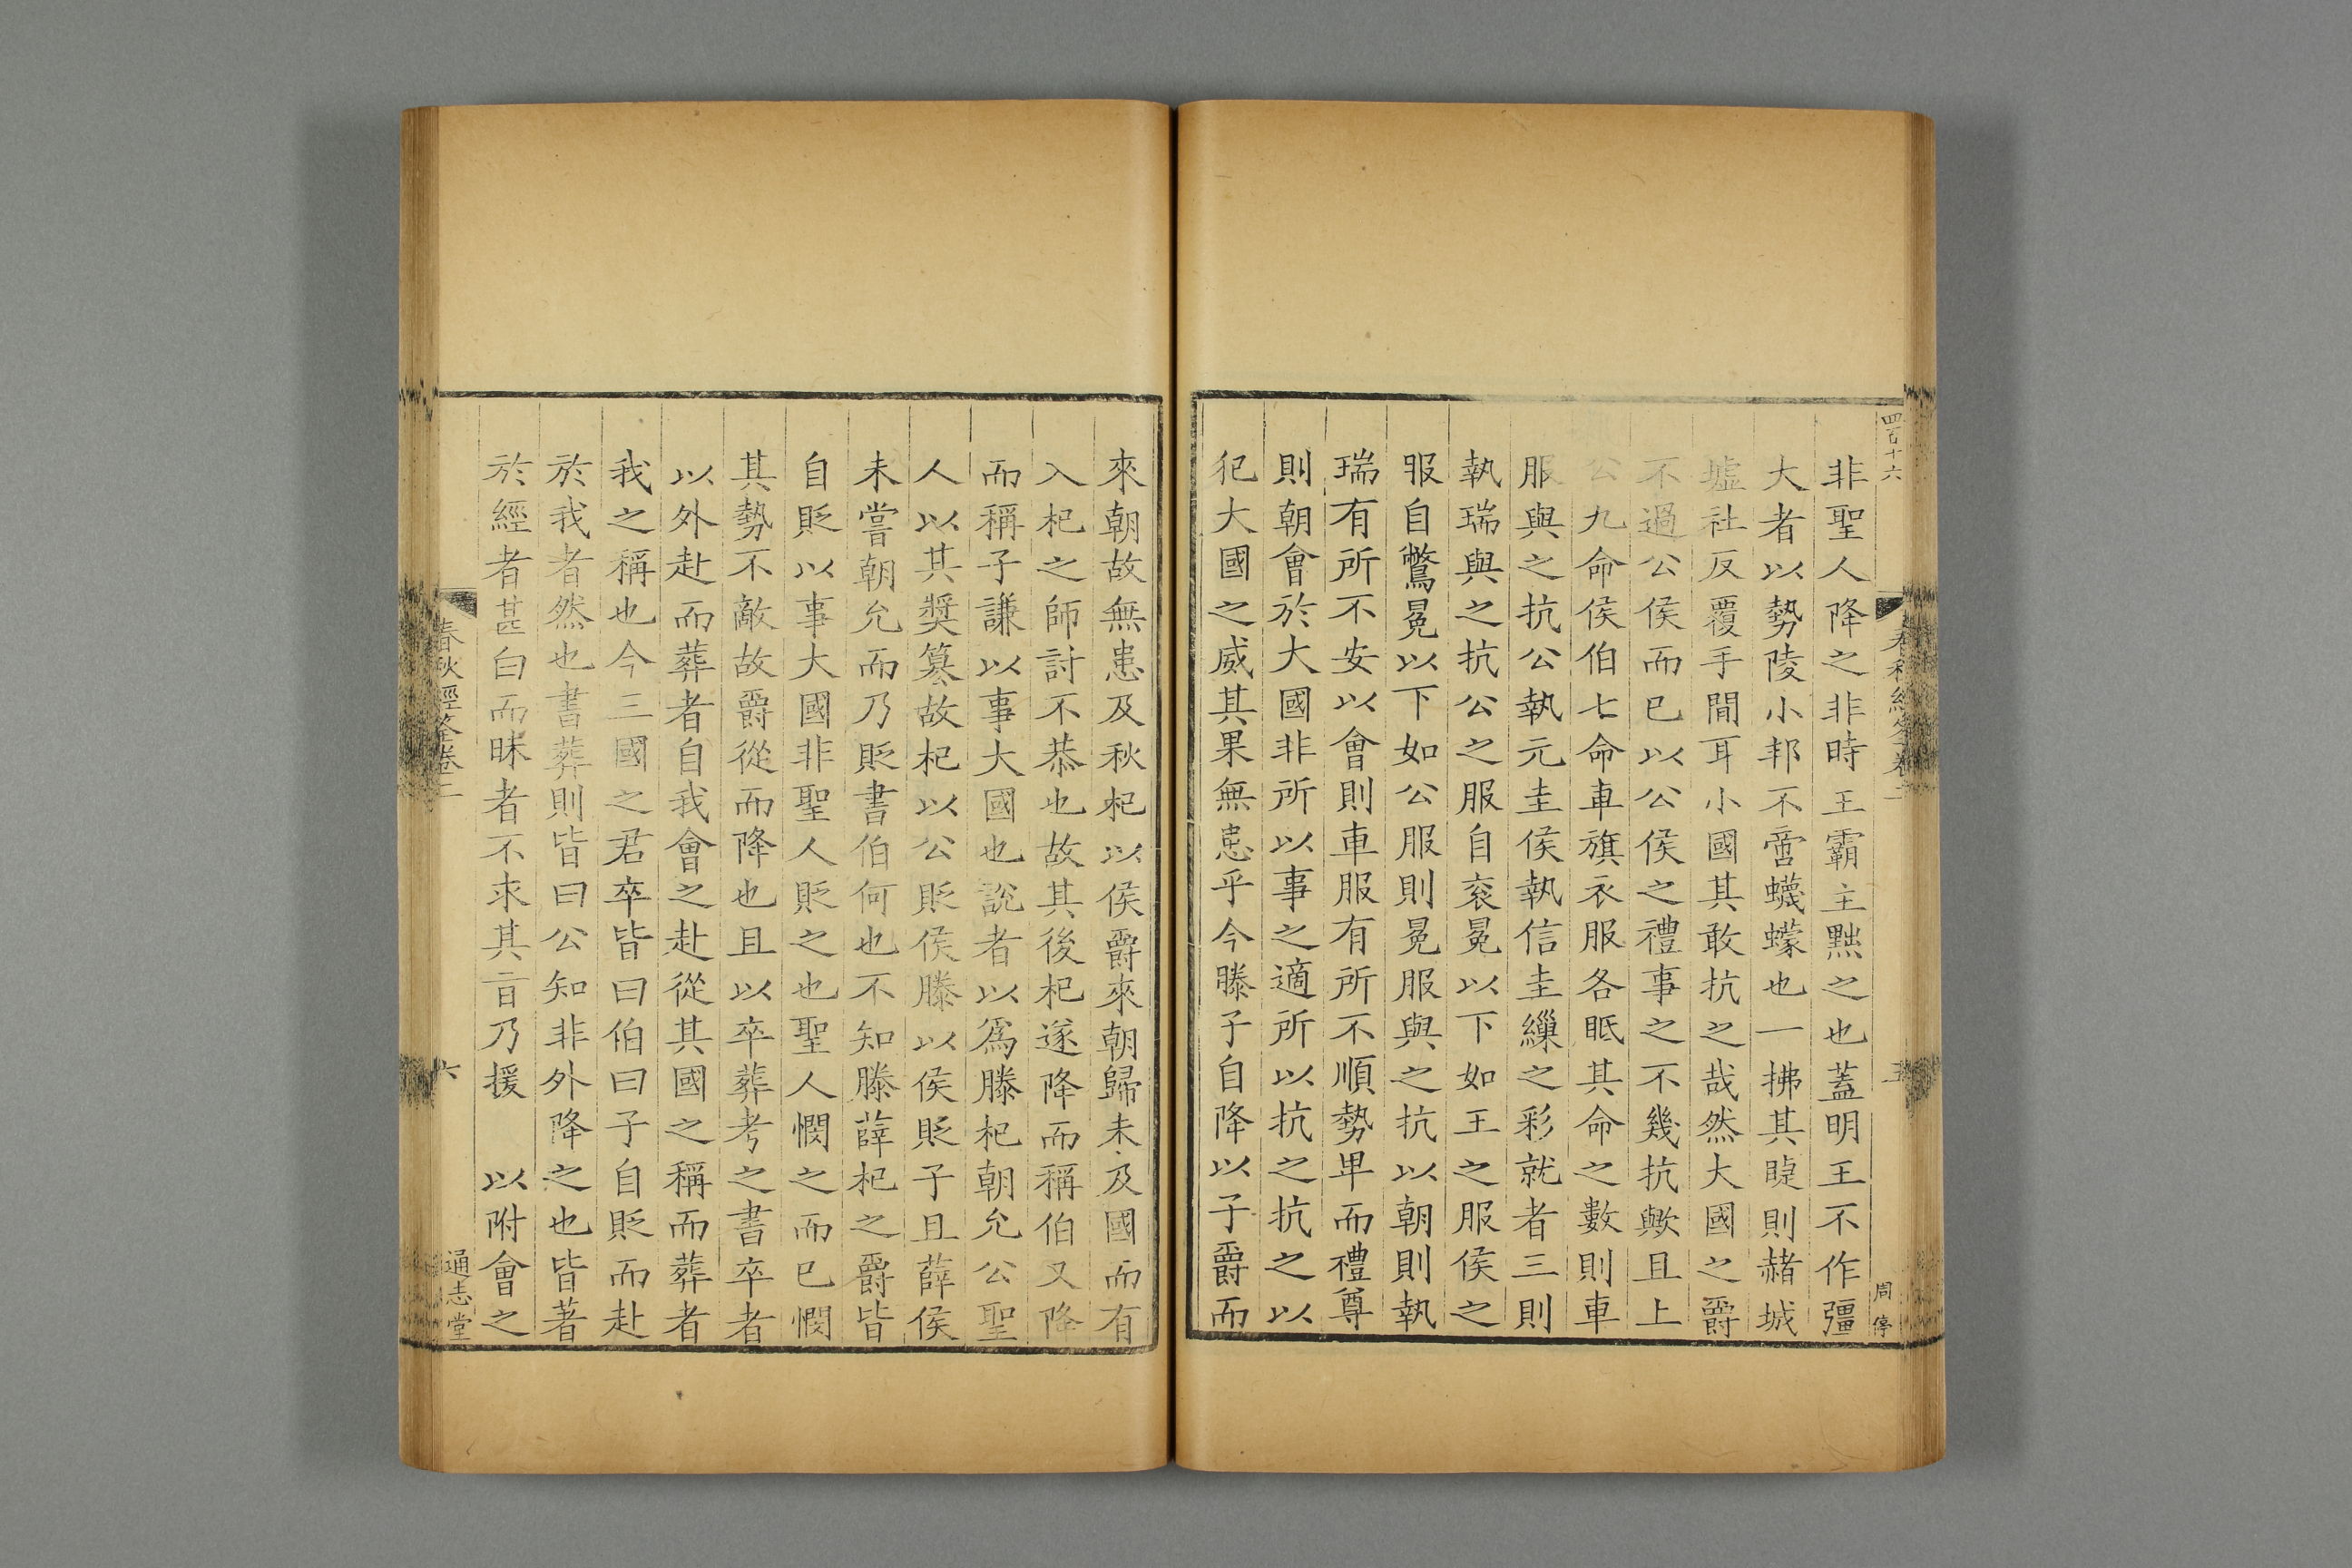 四百十六
春秋經筌卷二
五
周停
非聖人降之非時王霸主黜之也蓋明王不作彊
大者以勢陵小邦不啻蠛蠓也一拂其睫則赭城
墟社反覆手間耳小國其敢抗之哉然大國之爵
不過公侯而已以公侯之禮事之不幾抗歟且上
公九命侯伯七命車旗衣服各眡其命之數則車
服與之抗公執元圭侯執信圭繅之彩就者三則
執瑞與之抗公之服自衮冕以下如王之服侯之
服自鷩冕以下如公服則冕服與之抗以朝則執
瑞有所不安以會則車服有所不順勢卑而禮尊
則朝會於大國非所以事之適所以抗之抗之以
犯大國之威其果無患乎今滕子自降以子爵而
來朝故無患及秋杞以侯爵來朝歸未及國而有
入杞之師討不恭也故其後杞遂降而稱伯又降
而稱子謙以事大國也說者以為滕杞朝允公聖
人以其奨簒故杞以公貶侯滕以侯貶子且薛侯
未嘗朝允而乃貶書伯何也不知滕薛杞之爵皆
自貶以事大國非聖人貶之也聖人憫之而已憫
其勢不敵故爵從而降也且以卒葬考之書卒者
以外赴而葬者自我會之赴從其國之稱而葬者
我之稱也今三國之君卒皆曰伯曰子自貶而赴
於我者然也書葬則皆曰公知非外降之也皆著
於經者甚白而昧者不求其旨乃援 以附會之
春秋經筌卷二
六
通志堂